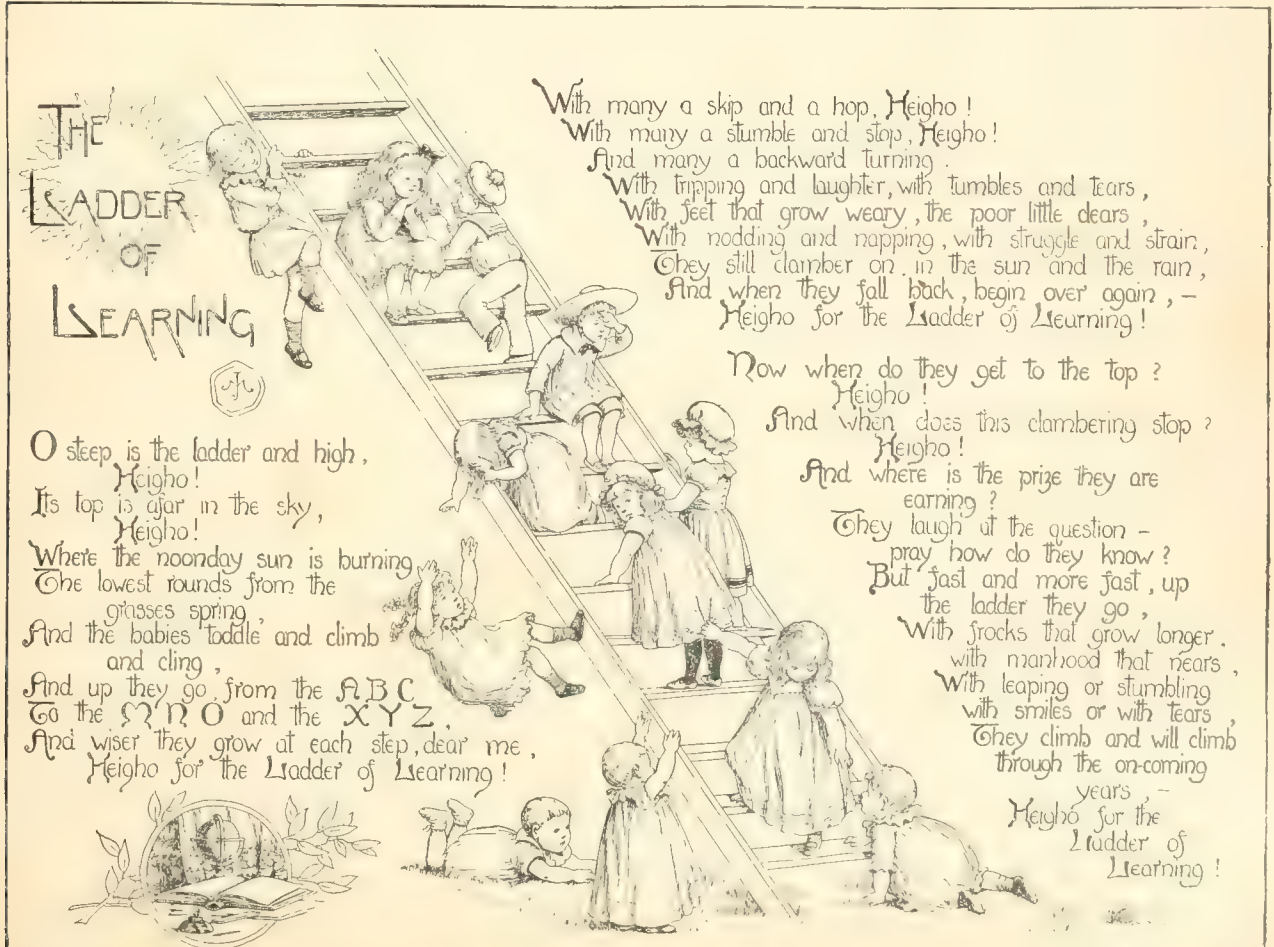 THE
LADDER
OF
LEARNING
O steep is the ladder and high,
Heigho!
Its top is afar in the sky,
Heigho!
Where the noonday sun is burning
The lowest rounds from the
grasses spring,
And the babies toddle and climb
and cling,
And up they go, from the A B C
To the M N O and the X Y Z,
And wiser they grow at each step, dear me,
Heigho for the Ladder of Learning!
With many a skip and a hop, Heigho!
With many a stumble and stop, Heigho!
And many a backward turning.
With tripping and laughter, with tumbles and tears,
With feet that grow weary, the poor little dears,
With nodding and napping, with struggle and strain,
They still clamber on, in the sun and the rain,
And when they fall back, begin over again, –
Heigho for the Ladder of Learning!
Now when do they get to the top?
Heigho!
And when does this clambering stop?
Heigho!
And where is the prize they are
earning?
They laugh at the question –
pray how do they know?
But fast and more fast, up
the ladder they go,
With frocks that grow longer,
with manhood that nears,
With leaping or stumbling
with smiles or with tears,
They climb and will climb
through the on-coming
years, –
Heigho for the
Ladder of
Learning!